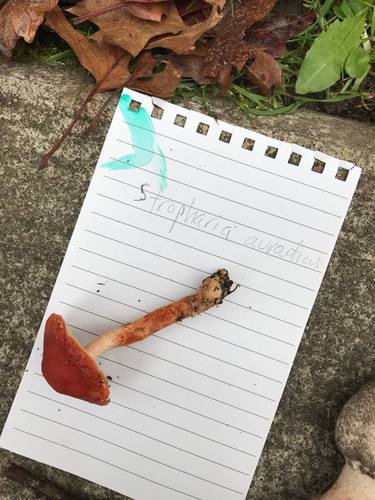 Stropharia auraticus